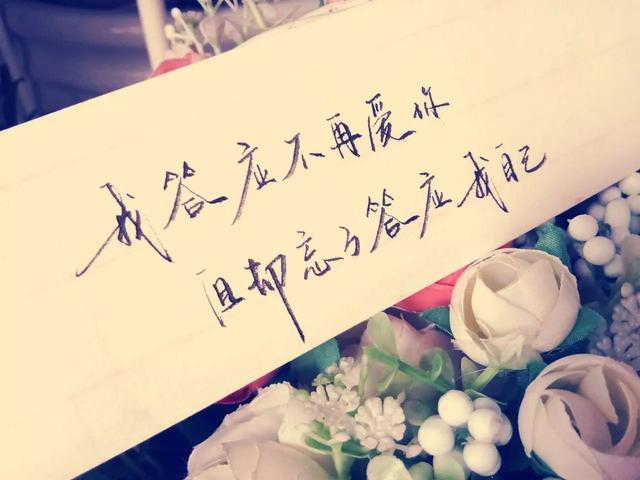 我答应不再爱你
但却忘了答应我自己